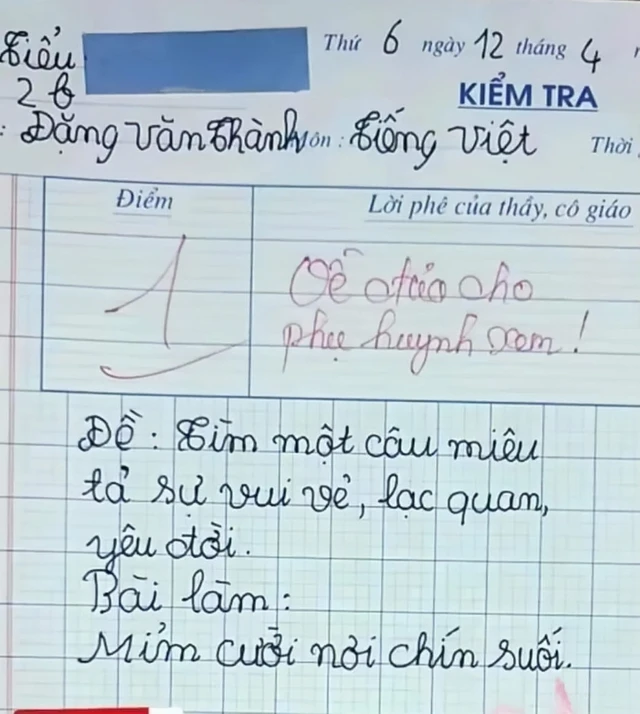 Tiểu
Thứ 6 ngày 12 tháng 4
2B
KIỂM TRA
: Đặng Văn Thành Môn : Tiếng Việt Thời
Điểm
Lời phê của thầy, cô giáo
1
Về đưa cho
phụ huynh xem!
Đề: Tìm một câu miêu
tả sự vui vẻ, lạc quan,
yêu đời.
Bài làm:
Mỉm cười nơi chín suối.